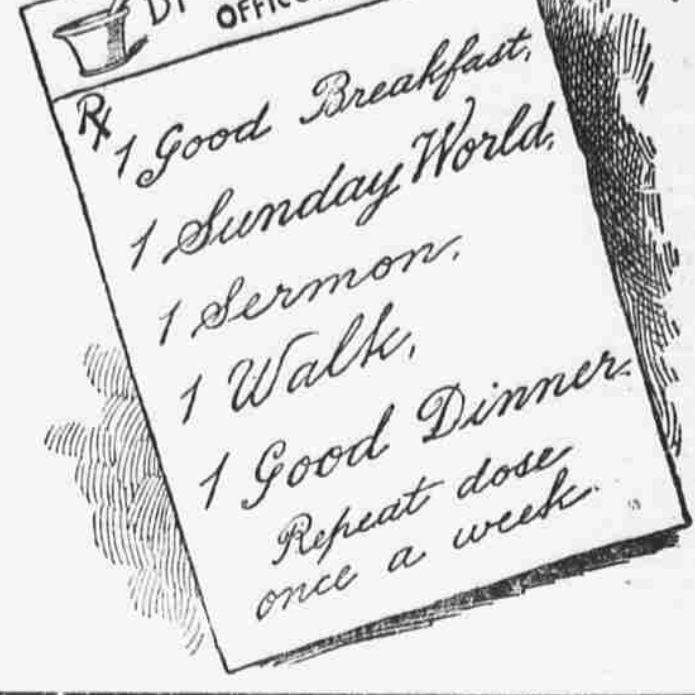 ℞
1 Good Breakfast,
1 Sunday World,
1 Sermon,
1 Walk,
1 Good Dinner.
Repeat dose
once a week.